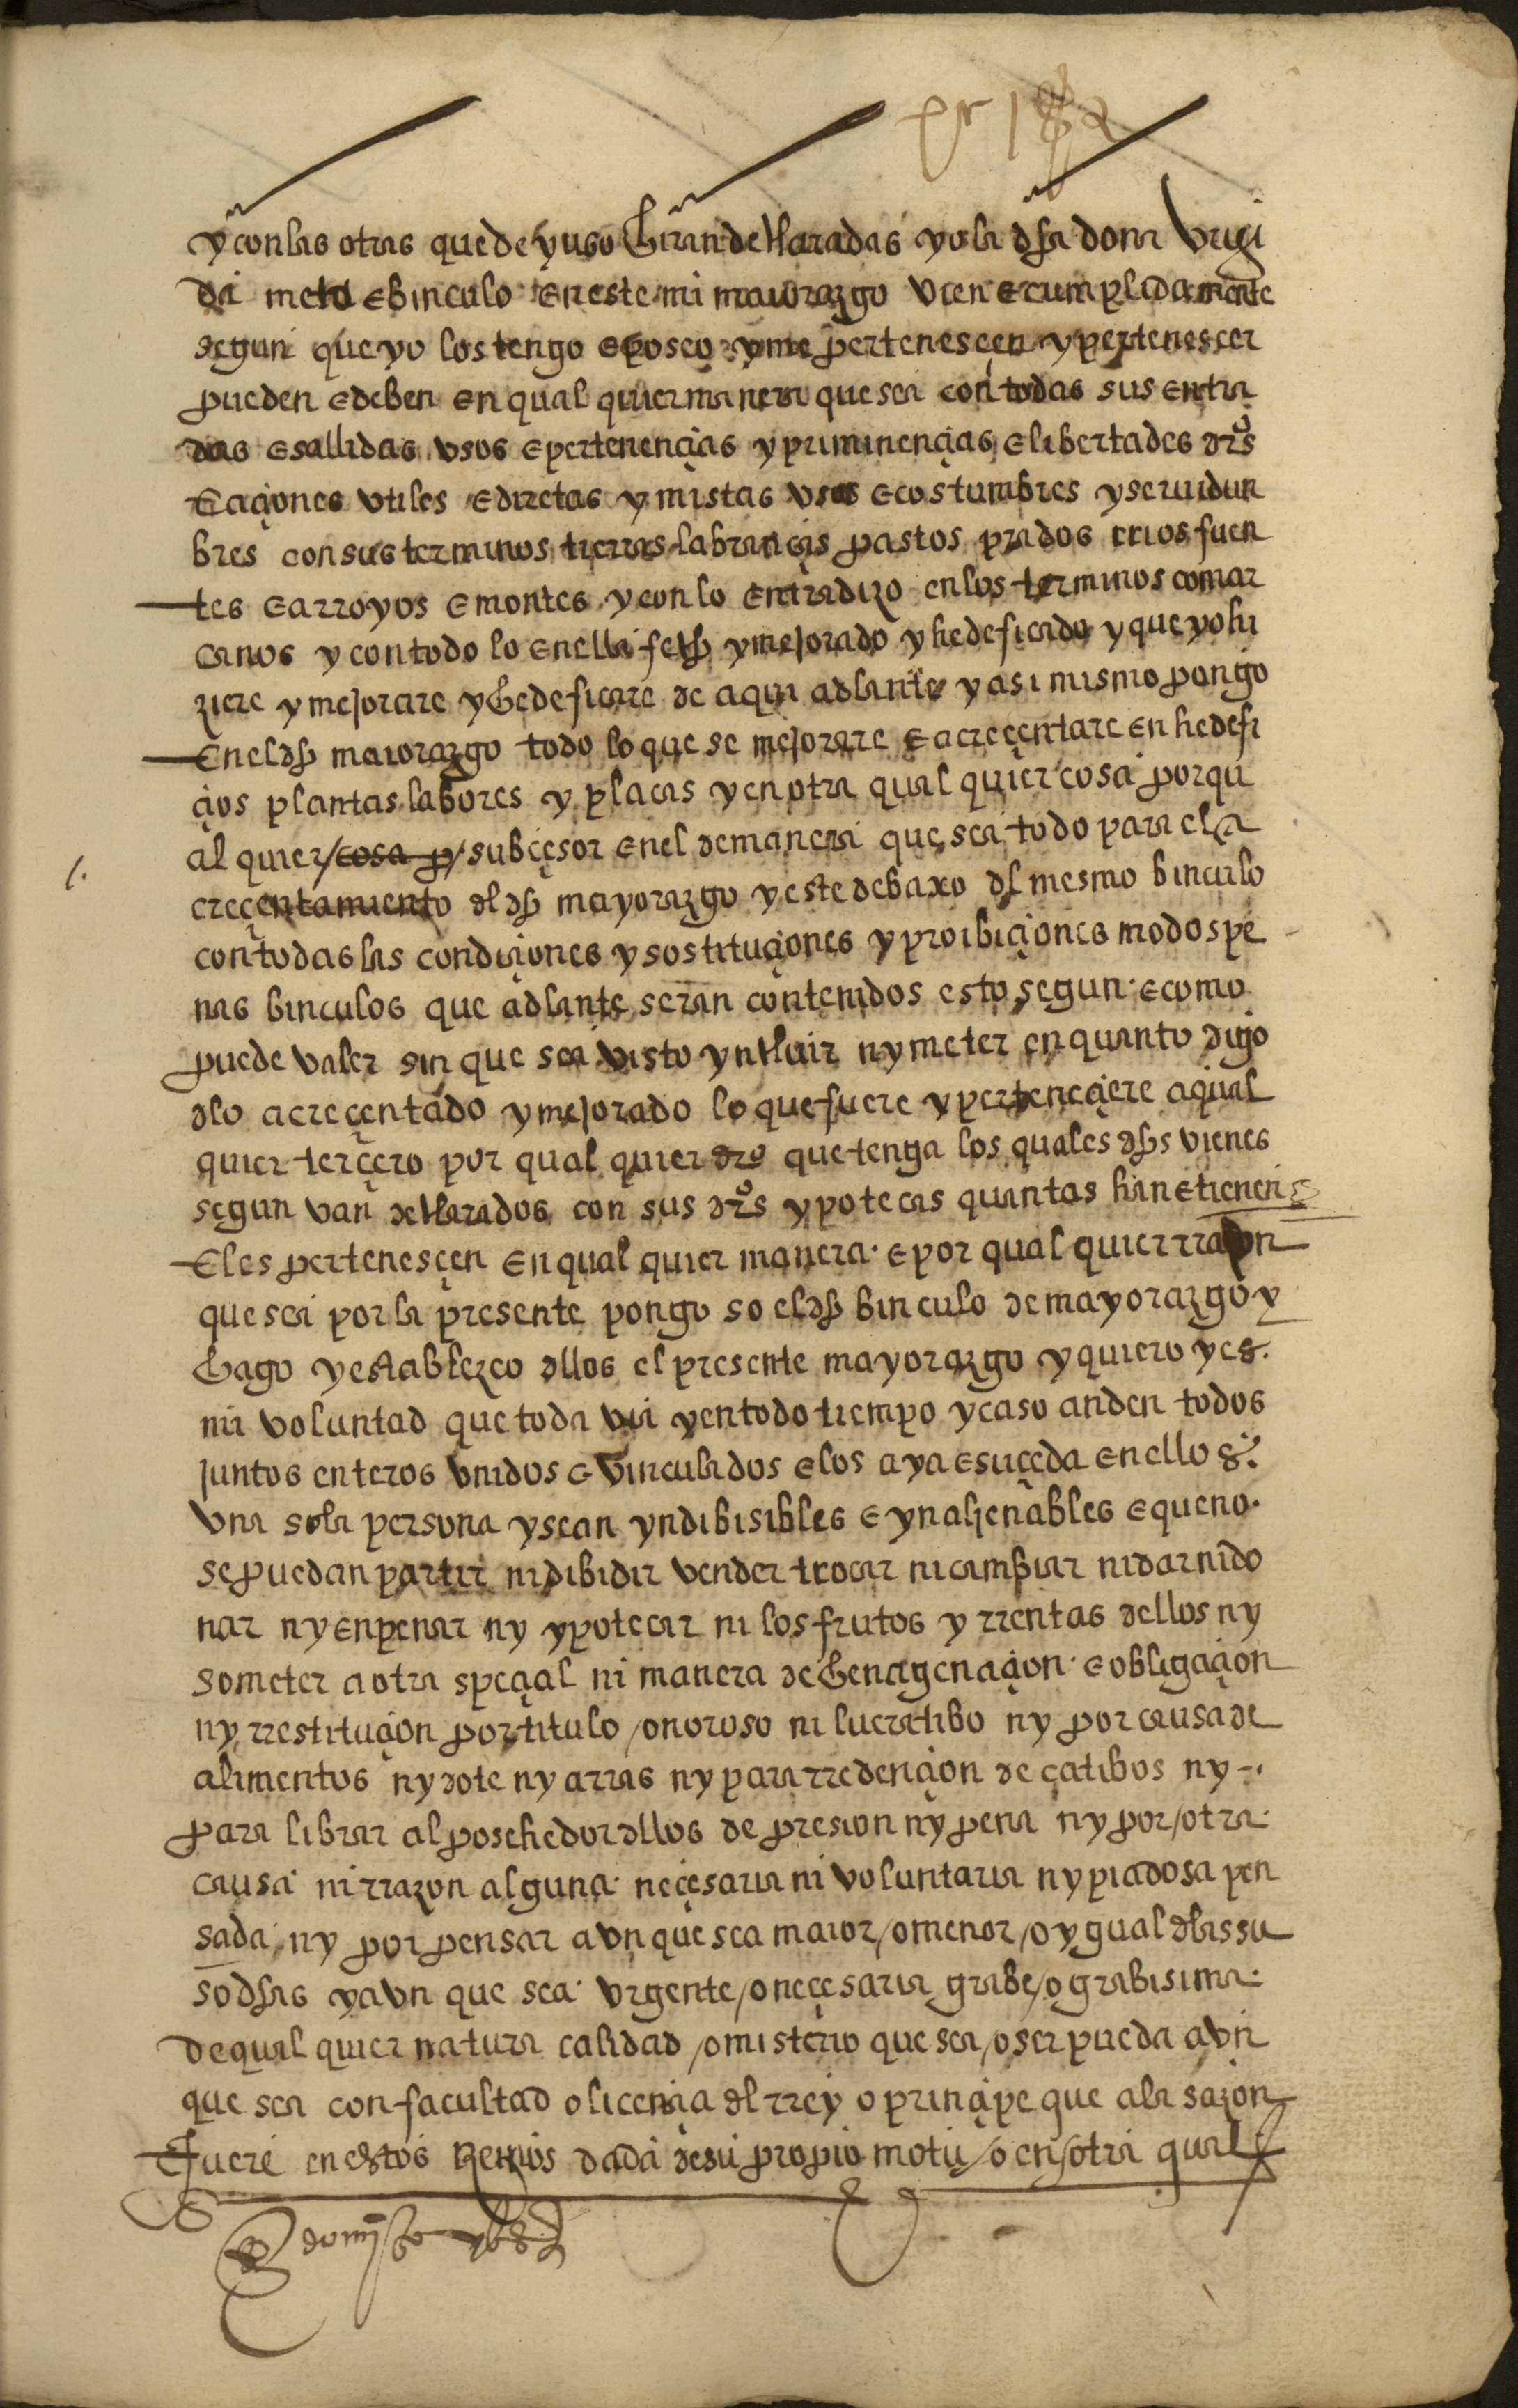 y con las otras que de yuso hiran decllaradas yo la dha dona vrigi
da meto e binculo en este mi maiorazgo vien e cumplidamente
segun que yo los tengo e poseo y me pertenesçen y pertenesçer
pueden e deben en qual quier manera que sea con todas sus entra
das e sallidas vsos e pertenençias y priminençias e libertades dros
e açiones vtiles e diretas y mistas vsos e costumbres y seruidun
bres con sus terminos tierras labranças pastos prados rrios fuen
tes e arroyos e montes y con lo entradizo en los terminos comar
canos y con todo lo en ella fecho y mejorado y hedeficado y que yo hi
ziere y mejorare y hedeficare de aqui adlante y asi mismo pongo
en el dho maiorazgo todo lo que se mejorare e acreçentare en hedefi
çios plantas labores y plaças y en otra qual quier cosa por qu
al quier cosa p subçesor en el de manera que sea todo para el a
creçentamiento del dho mayorazgo y este debaxo del mesmo binculo
con todas las condiçiones y sostituçiones y proibiçiones modos pe
nas binculos que adlante seran contenidos esto segun e como
puede valer sin que sea visto yncluir ny meter en quanto digo
dlo acreçentado y mejorado lo que fuere y perteneçiere a qual
quier terçero por qual quier dro que tenga los quales dhos vienes
segun van decllarados con sus dros ypotecas quantas han e tienen e
e les pertenesçen en qual quier manera e por qual quier rrazon
que sea por la presente pongo so el dho binculo de mayorazgo y
hago y establezco dllos el presente mayorazgo y quiero y es
mi voluntad que toda via y en todo tiempo y caso anden todos
juntos enteros vnidos e vinculados e los aya e suçeda en ellos
vna sola persona y sean yndibisibles e ynalienables e que no
se puedan partir ni dibidir vender trocar ni cambiar ni dar ni do
nar ny enpenar ny ypotecar ni los frutos y rrentas dellos ny
someter a otra speçial ni manera de henagenaçion e obligaçion
ny rrestituçion por titulo onoroso ni lucratibo ny por causa de
alimentos ny dote ny arras ny para rredençion de catibos ny
para librar al posehedor dllos de presion ny pena ny por otra
causa ni rrazon alguna neçesaria ni voluntaria ny piadosa pen
sada ny por pensar avn que sea maior o menor o ygual dlas su
sodhas y avn que sea vrgente o neçesaria grabe o grabisima
de qual quier natura calidad o misterio que sea o ser pueda avn
que sea con facultad o liçençia del rrey o prinçipe que a la sazon
fuere en estos Reynos dada de su propio motu o en otra qual